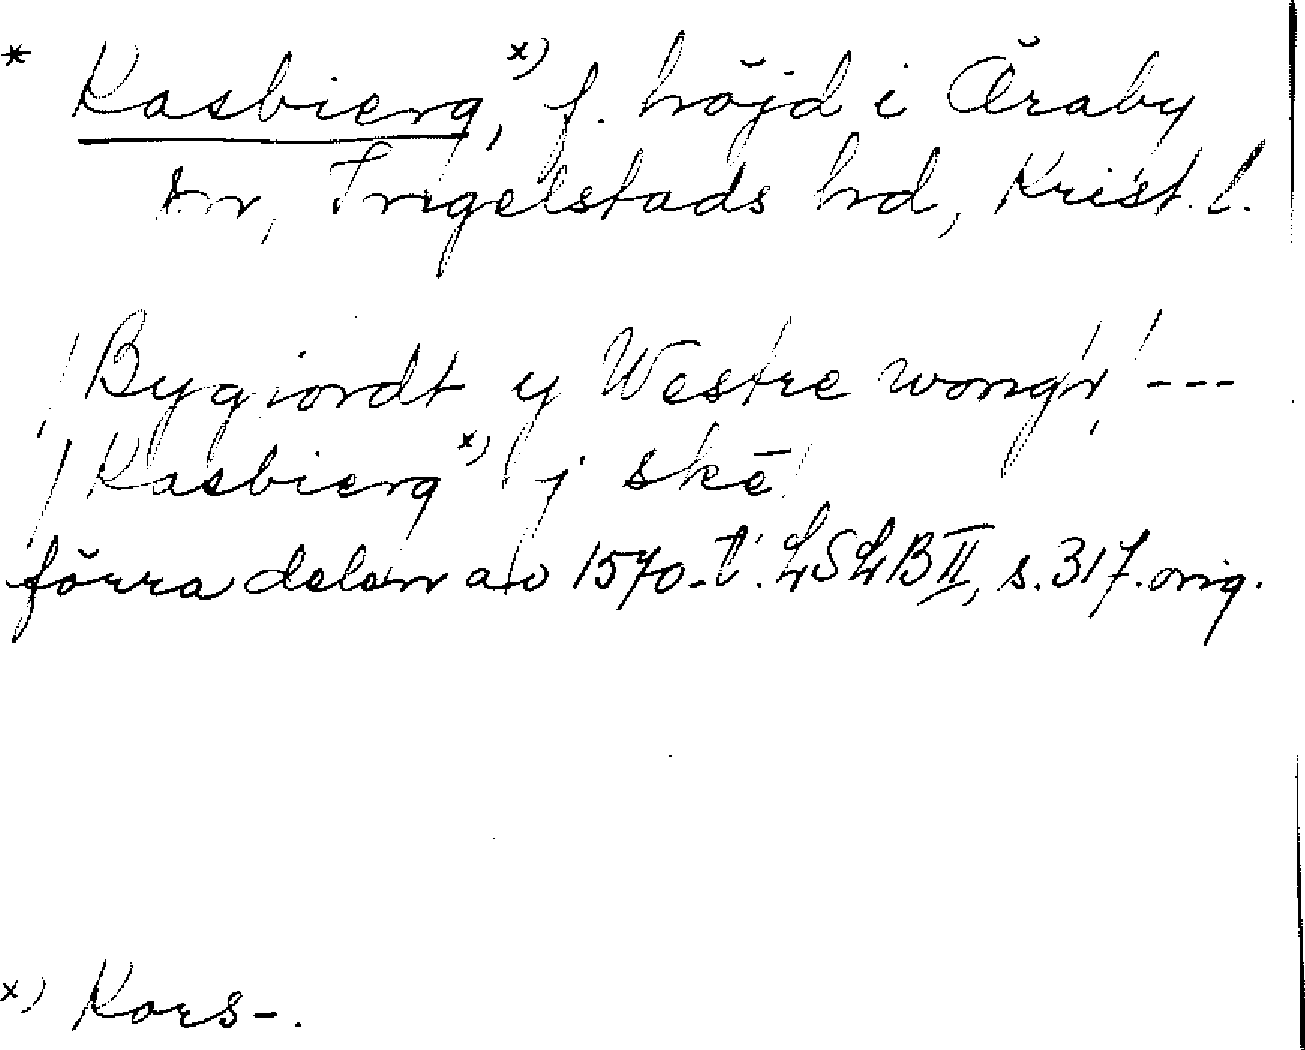 * Kasbierg,ˣ⁾ f. höjd i Åraby
sn, Ingelstads hd, Krist. l.
/Bygiordt y Westre wong'r/ ---
/Kasbiergˣ⁾ j skē/
förra delen av 1570-t. LSLB II, s. 317. orig.
ˣ⁾ Kors-.